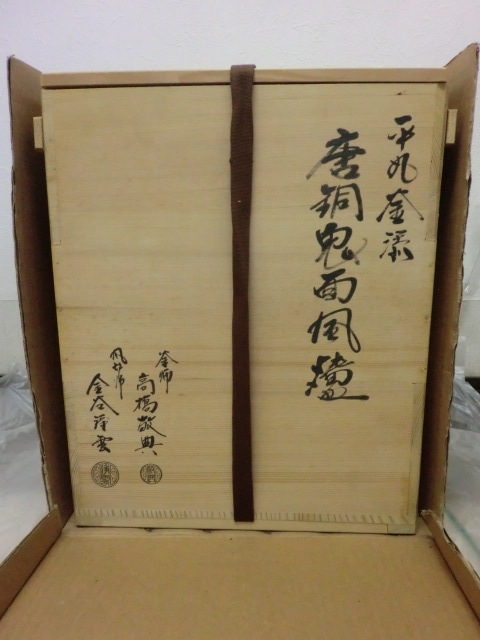 平丸釜添
唐銅鬼面風爐
釜師
高橋敬典
風炉師
金谷浄雲